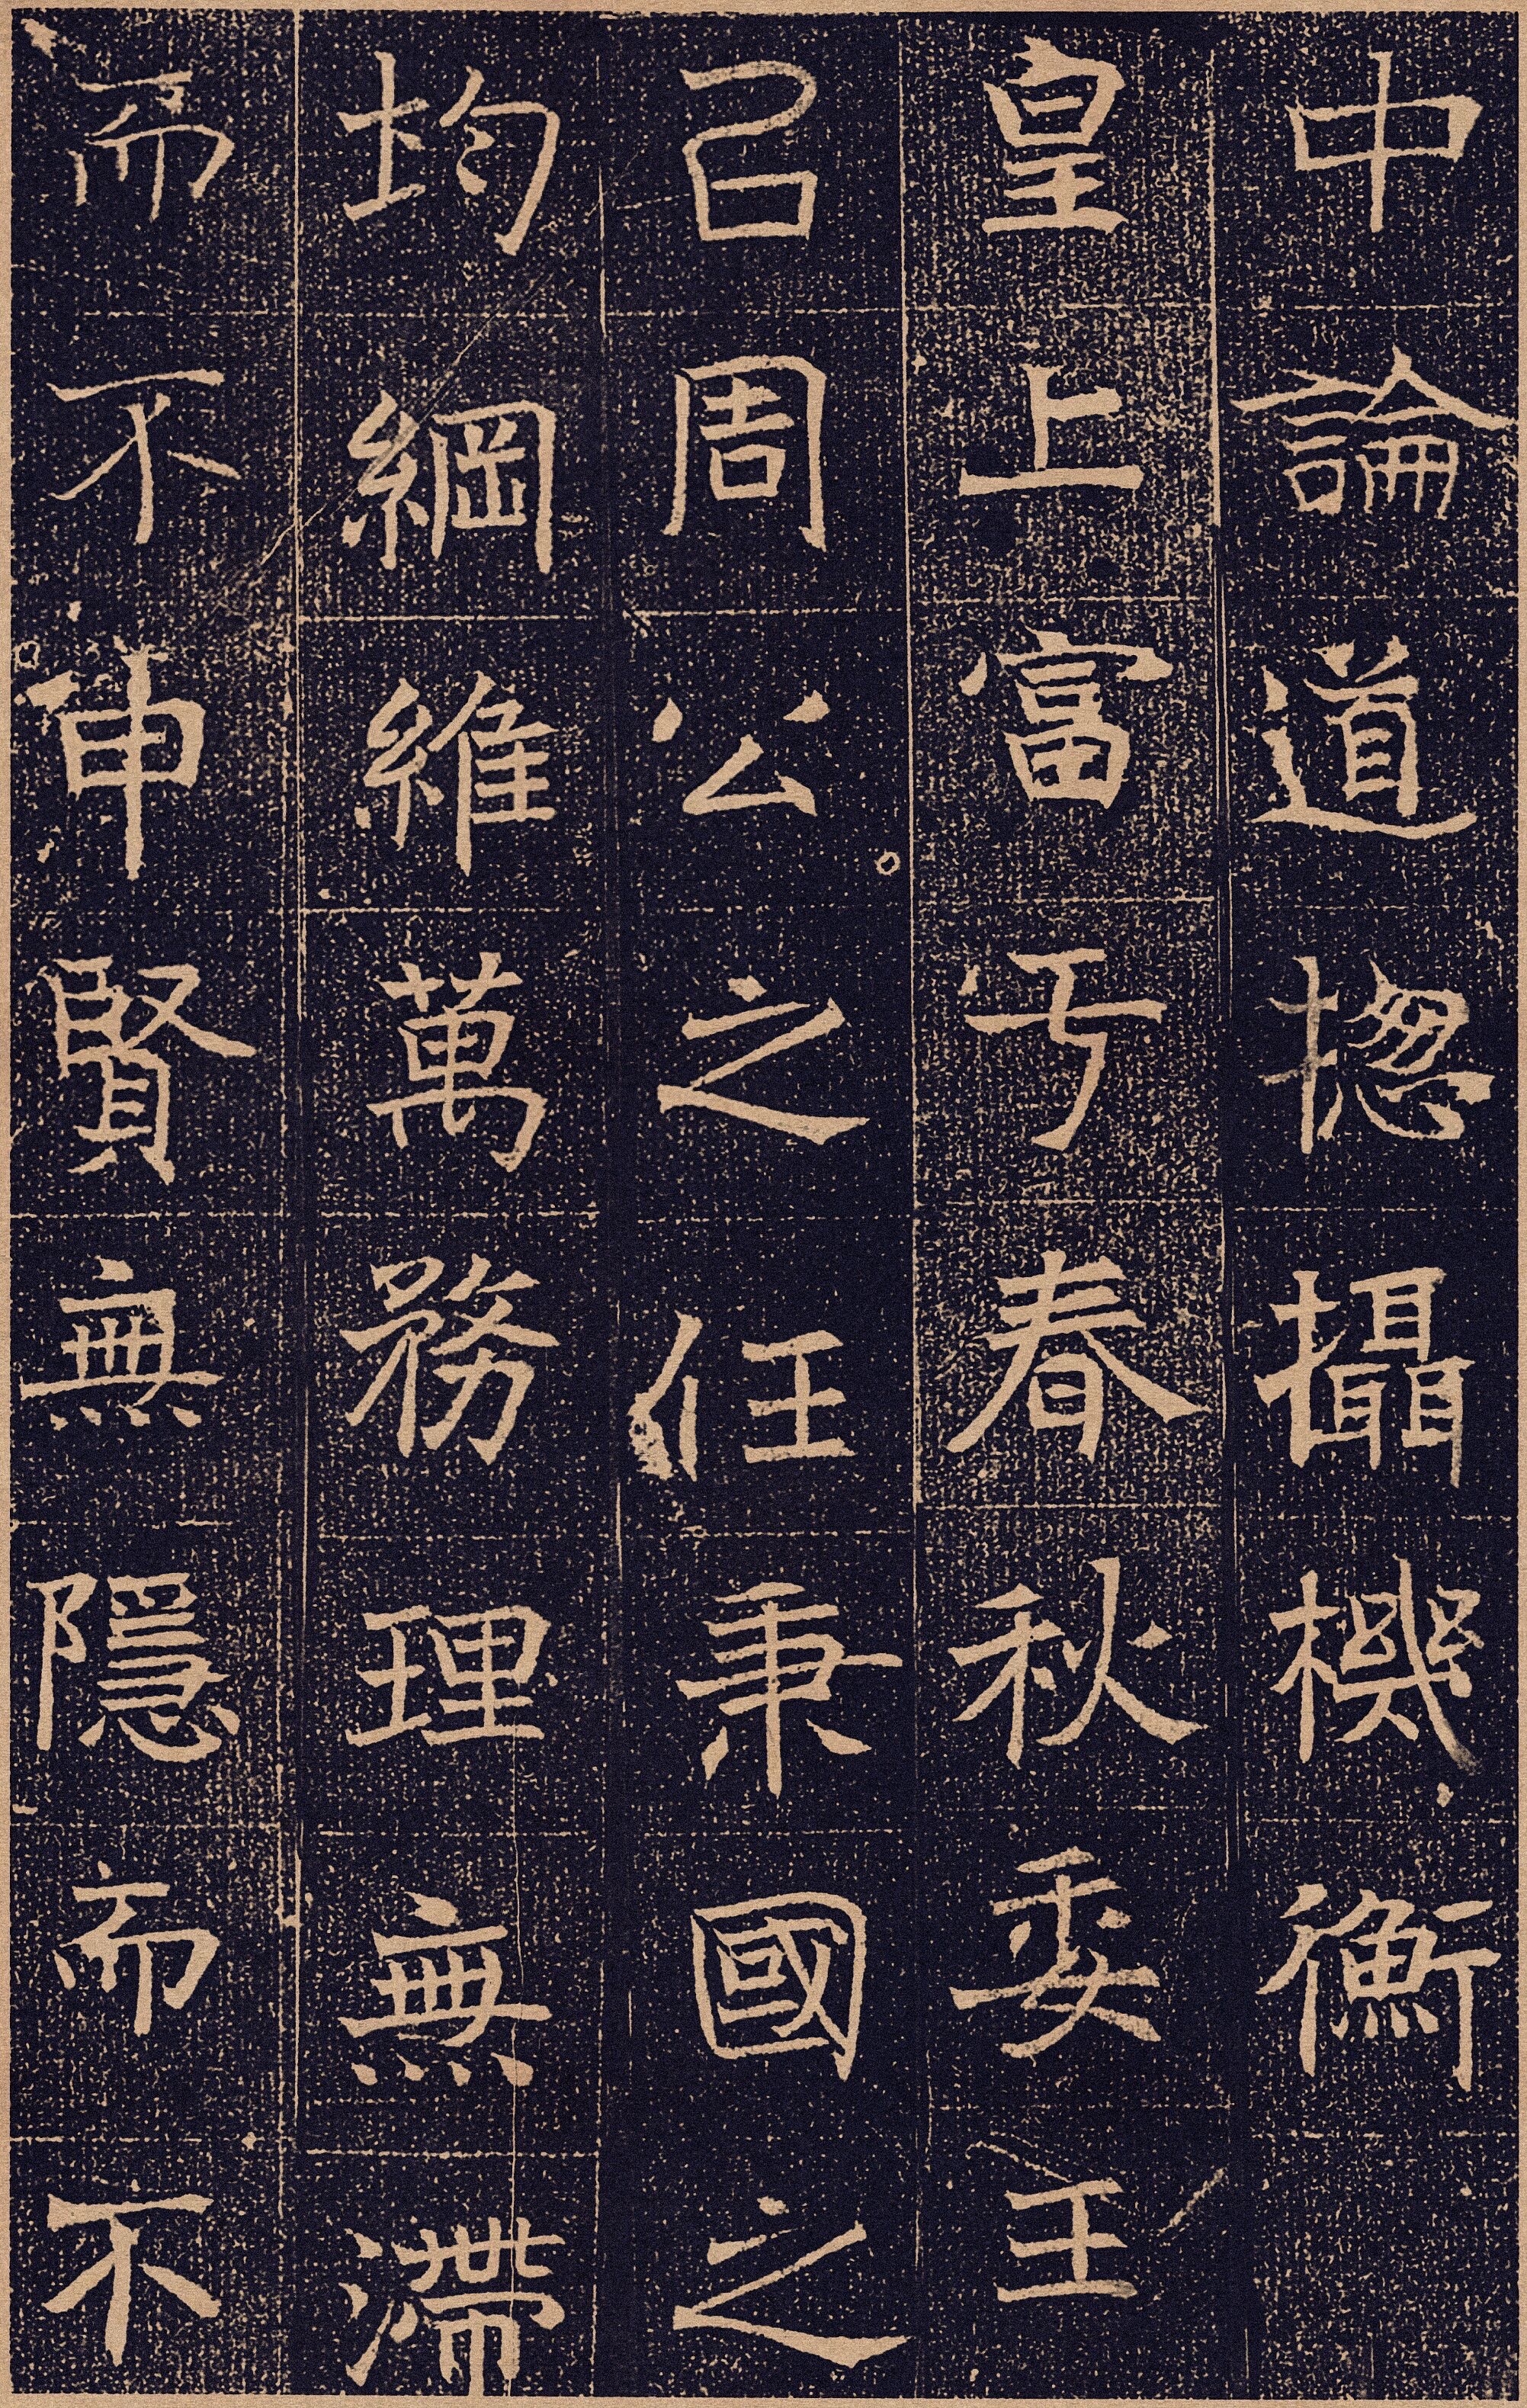 中論道惣攝機衡
皇上富於春秋委王
以周公之任秉國之
均綱維萬務理無滯
而不申賢無隱而不